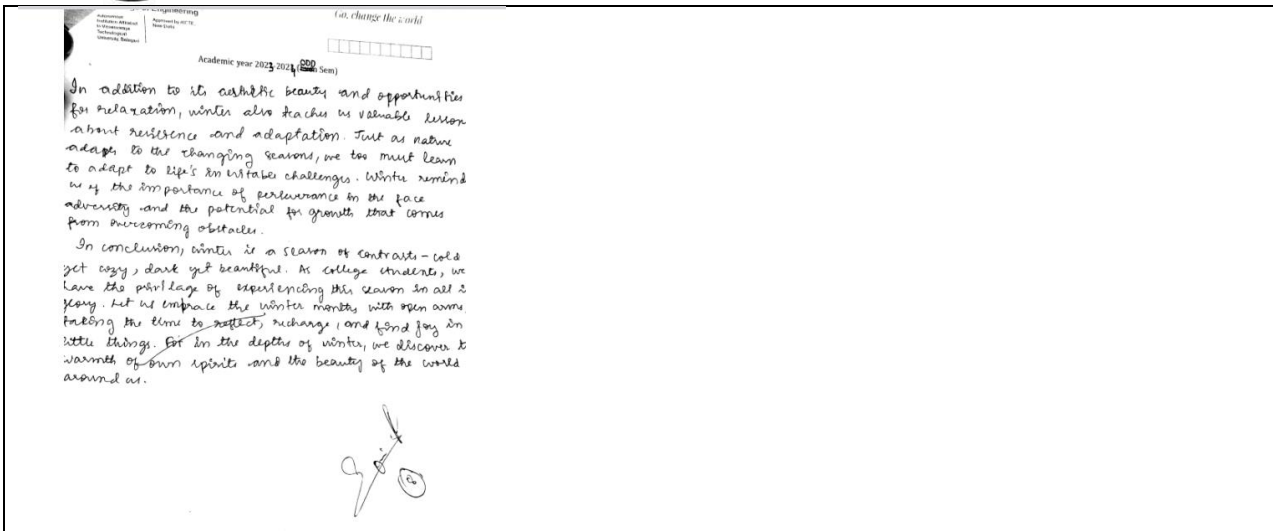 of Engineering
Go, change the world
Autonomous
Institution Affiliated
to Visvesvaraya
Technological
University, Belagavi
Approved by AICTE,
New Delhi
Academic year 2023-2024 (ODD Sem)
In addition to its aesthetic beauty and opportunities
for relaxation, winter also teaches us valuable lesson
about resilience and adaptation. Just as nature
adapts to the changing seasons, we too must learn
to adapt to life's inevitable challenges. Winter remind
us of the importance of perseverance in the face
adversity and the potential for growth that comes
from overcoming obstacles.
In conclusion, winter is a season of contrasts - cold
yet cozy, dark yet beautiful. As college students, we
have the privilage of experiencing this season in all i
glory. Let us embrace the winter months with open arms
taking the time to reflect, recharge, and find joy in
little things. For in the depths of winter, we discover t
warmth of own spirits and the beauty of the world
around us.